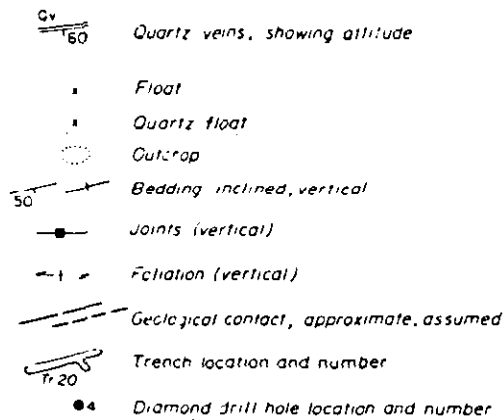 Qv
60 Quartz veins, showing attitude
Float
Quartz float
Outcrop
50 Bedding inclined, vertical
Joints (vertical)
Foliation (vertical)
Geological contact, approximate, assumed
Trench location and number
Tr 20
4 Diamond drill hole location and number